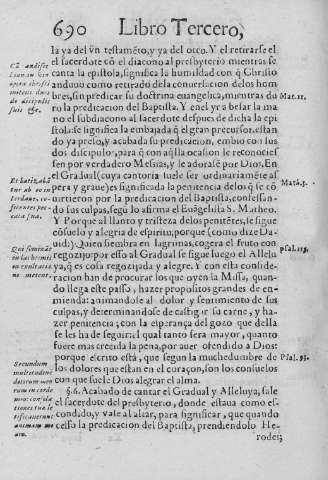 690 Libro Tercero,
la ya del vn testamẽto, y ya del otro. Y el retirarse el
el sacerdote cõ el diacono al presbyterio mientras se
canta la epistola, significa la humildad con q̃ Christo
anduuo como retirado de la conuersacion de los hom
bres, sin predicar su doctrina euangelica, mientras du
ro la predicacion del Baptista. Y en el yr a besar la ma
no el subdiacono al sacerdote despues de dicha la epi
stola: se significa la embajada q̃ el gran precursor, estan
do ya preso, y acabada su predicacion, embio con sus
dos discipulos, para q̃ con aq̃lla ocasion le reconocies
sen por verdadero Messias, y le adorasẽ por Dios. En
el Gradual (cuya cantoria suele ser ordinariamẽte as
pera y graue) es significada la penitencia de los q̃ se cõ
uirtieron por la predicacion del Baptista, confessan-
do sus culpas, segũ lo afirma el Euãgelista S. Matheo.
Y Porque al llanto y tristeza de los penitẽtes, se sigue
cõsuelo y alegria de espiritu, porque (como dize Da-
uid:) Quien siembra en lagrimas, cogera el fruto con
regozijo: por esso al Gradual se sigue luego el Allelu
ya, q̃ es cosa regozijada y alegre. Y con esta conside-
racion han de procurar los que oyẽn la Missa, quan-
do llega este passo, hazer propositos grandes de en-
mienda: animandose al dolor y sentimiento de sus
culpas, y determinandose de castigar su carne, y ha-
zer penitencia; con la esperança del gozo que della
se les ha de seguir: el qual tanto sera mayor, quanto
fuere mas crecida la pena, por auer ofendido a Dios:
porque escrito está, que segun la muchedumbre de
los dolores que estan en el coraçon, son los consuelos
con que suele Dios alegrar el alma.
§.6. Acabado de cantar el Gradual y Alleluya, sale
el sacerdote del presbyterio, donde estaua como es-
condido, y vase al altar, para significar, que quando
cesso la predicacion del Baptista, prendiendolo He-
rodes;
Mat.11.
Math.3.
Psal.125
Psal.93.
Et baptiza-
Qui seminãt
in lachrimis
in exultatio
ne metent.
Secundum
multitudinẽ
dolorum meo
rum in corde
meo: consola
tiones tuæ læ
tificauerunt
animam me
am.